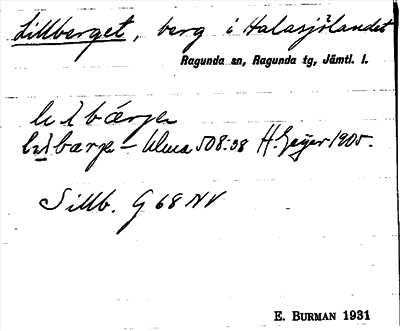 Lillberget, berg i Halasjölandet
Ragunda sn, Ragunda tg, Jämtl. l.
bærje
bærje – Ulma 508:38 H. Geijer 1905.
Sillb. G 68 NV
E. BURMAN 1931